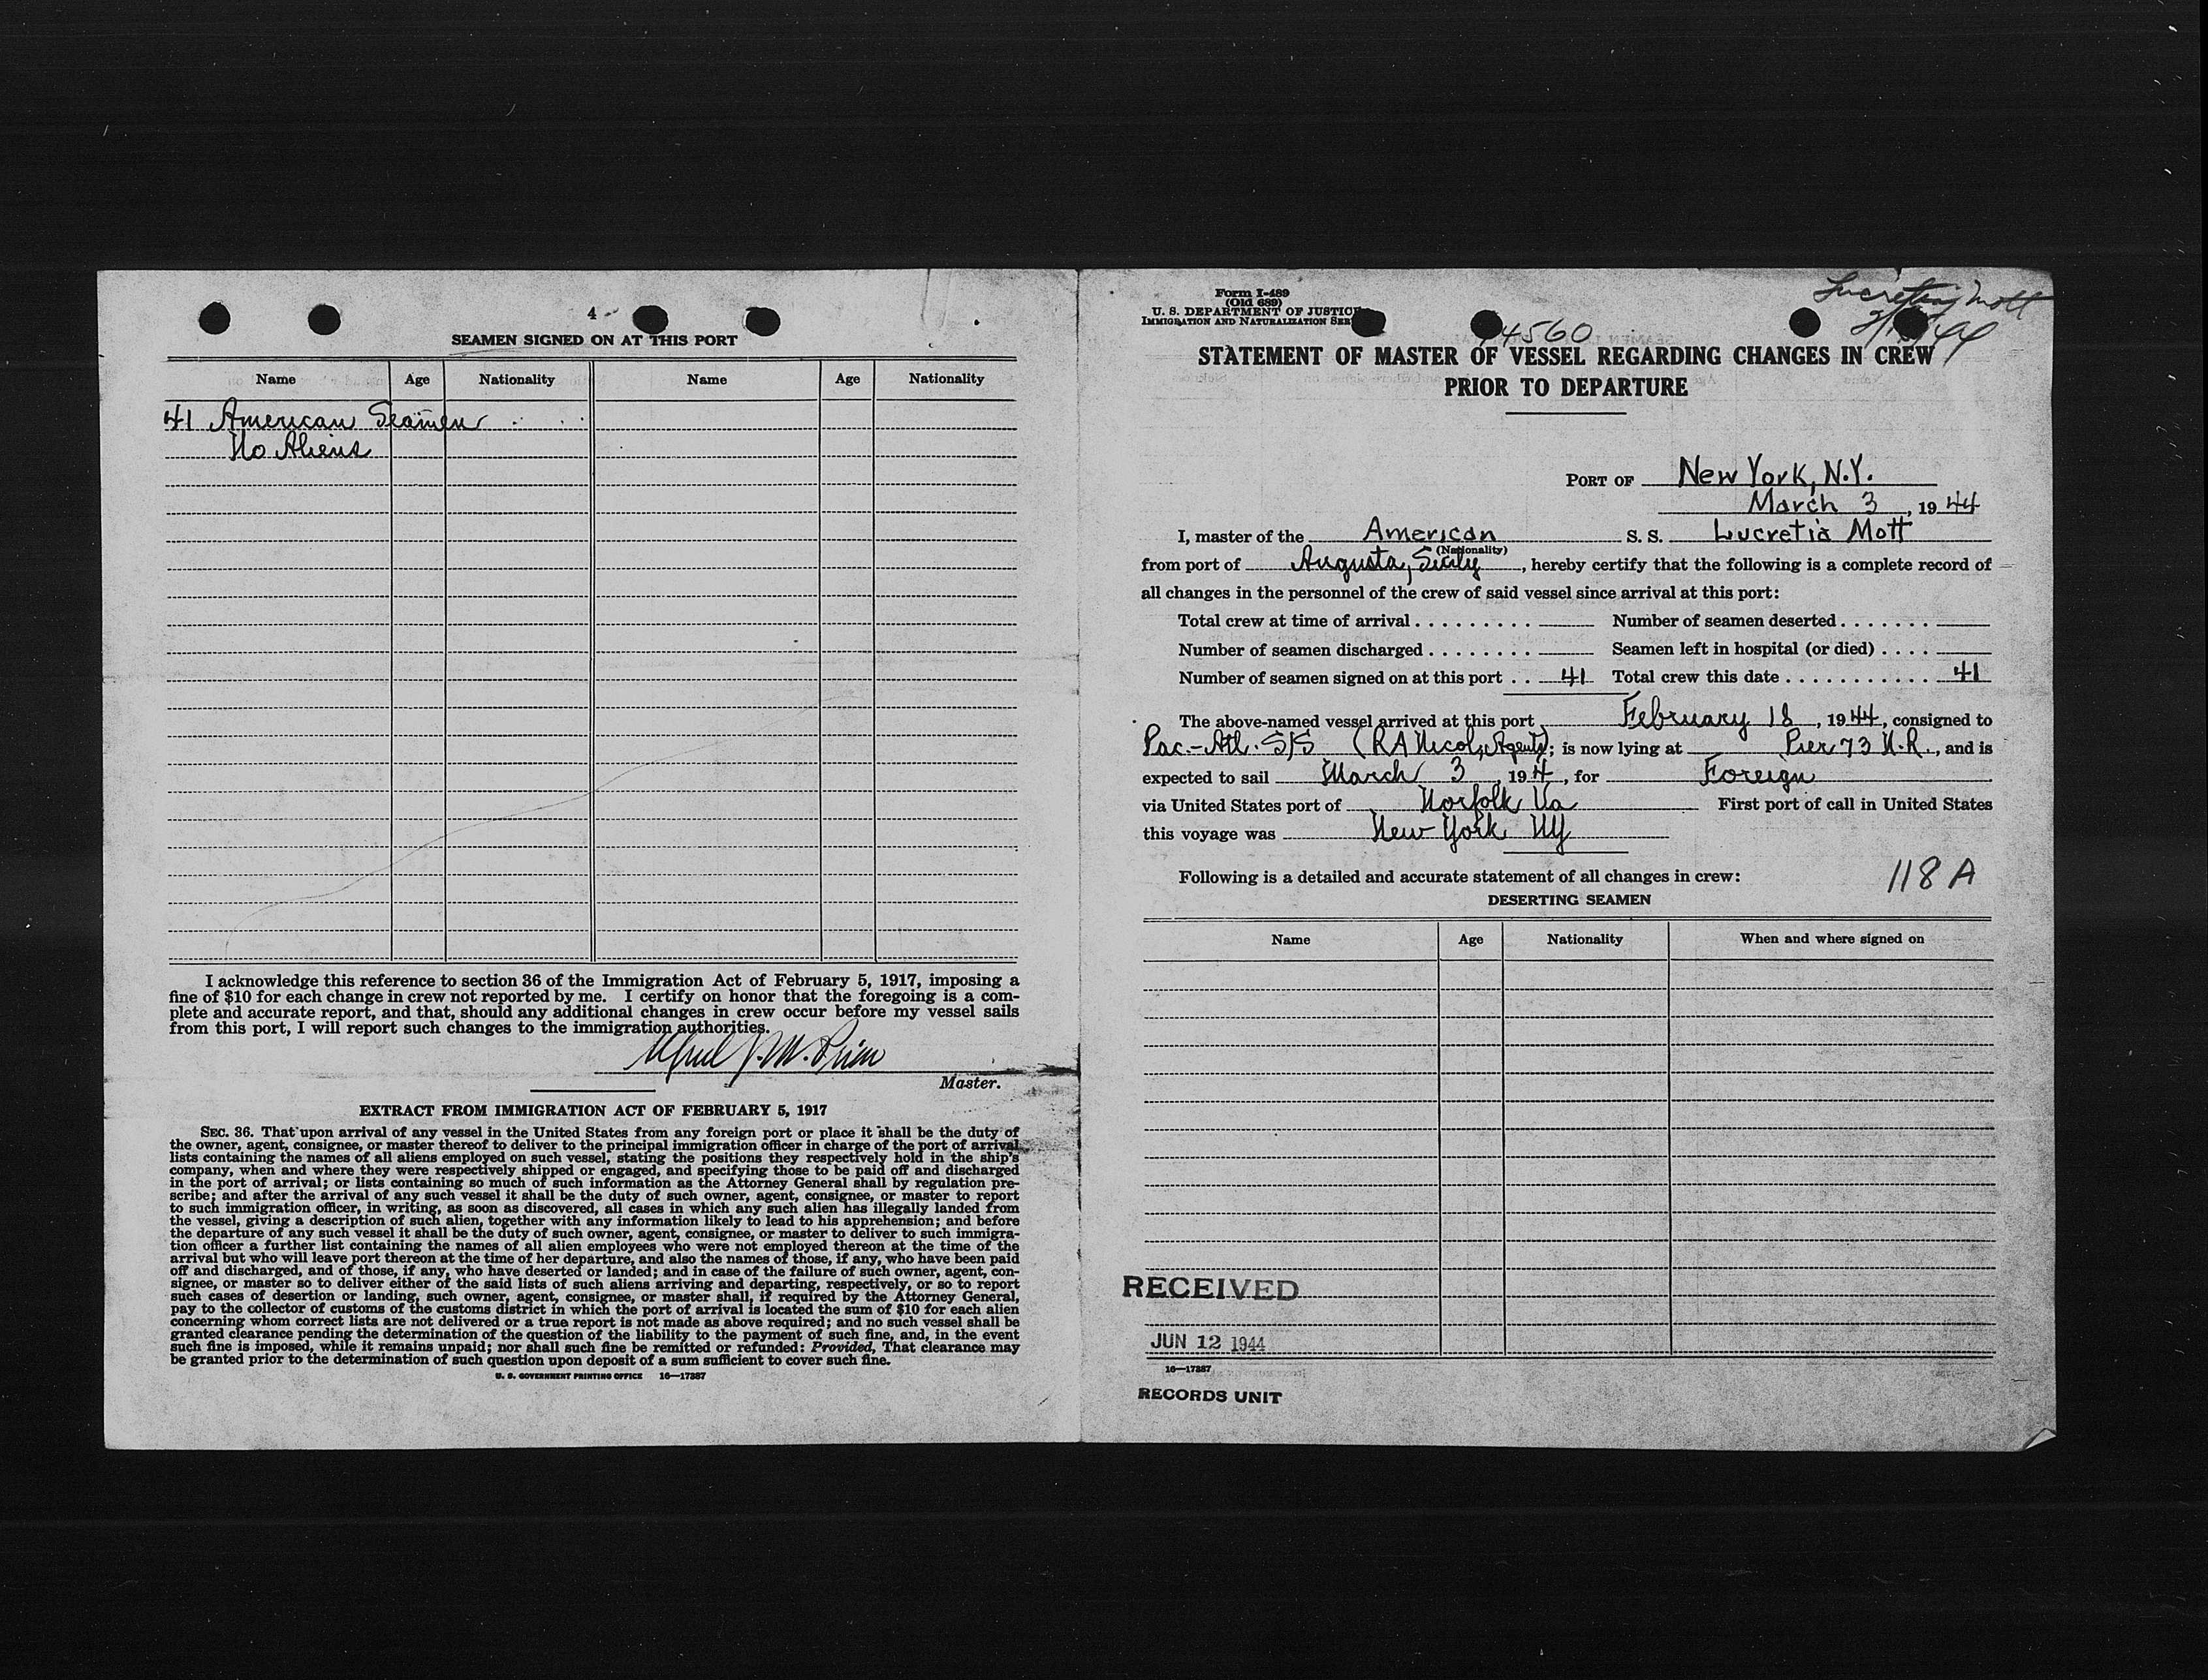 4
SEAMEN SIGNED ON AT THIS PORT
Name Age Nationality Name Age Nationality
41 American Seamen
No Aliens
I acknowledge this reference to section 36 of the Immigration Act of February 5, 1917, imposing a
fine of $10 for each change in crew not reported by me. I certify on honor that the foregoing is a com-
plete and accurate report, and that, should any additional changes in crew occur before my vessel sails
from this port, I will report such changes to the immigration authorities.
Master.
EXTRACT FROM IMMIGRATION ACT OF FEBRUARY 5, 1917
SEC. 36. That upon arrival of any vessel in the United States from any foreign port or place it shall be the duty of
the owner, agent, consignee, or master thereof to deliver to the principal immigration officer in charge of the port of arrival
lists containing the names of all aliens employed on such vessel, stating the positions they respectively hold in the ship's
company, when and where they were respectively shipped or engaged, and specifying those to be paid off and discharged
in the port of arrival; or lists containing so much of such information as the Attorney General shall by regulation pre-
scribe; and after the arrival of any such vessel it shall be the duty of such owner, agent, consignee, or master to report
to such immigration officer, in writing, as soon as discovered, all cases in which any such alien has illegally landed from
the vessel, giving a description of such alien, together with any information likely to lead to his apprehension; and before
the departure of any such vessel it shall be the duty of such owner, agent, consignee, or master to deliver to such immigra-
tion officer a further list containing the names of all alien employees who were not employed thereon at the time of the
arrival but who will leave port thereon at the time of her departure, and also the names of those, if any, who have been paid
off and discharged, and of those, if any, who have deserted or landed; and in case of the failure of such owner, agent, con-
signee, or master so to deliver either of the said lists of such aliens arriving and departing, respectively, or so to report
such cases of desertion or landing, such owner, agent, consignee, or master shall, if required by the Attorney General,
pay to the collector of customs of the customs district in which the port of arrival is located the sum of $10 for each alien
concerning whom correct lists are not delivered or a true report is not made as above required; and no such vessel shall be
granted clearance pending the determination of the question of the liability to the payment of such fine, and, in the event
such fine is imposed, while it remains unpaid; nor shall such fine be remitted or refunded: Provided, That clearance may
be granted prior to the determination of such question upon deposit of a sum sufficient to cover such fine.
U. S. GOVERNMENT PRINTING OFFICE 16—17387
Form I-489
(Old 689)
U. S. DEPARTMENT OF JUSTICE
IMMIGRATION AND NATURALIZATION
Lucretia Mott
4560
STATEMENT OF MASTER OF VESSEL REGARDING CHANGES IN CREW
PRIOR TO DEPARTURE
PORT OF New York, N.Y.
March 3, 1944
I, master of the American S. S. Lucretia Mott
(Nationality)
from port of Augusta, Sicily, hereby certify that the following is a complete record of
all changes in the personnel of the crew of said vessel since arrival at this port:
Total crew at time of arrival ......... Number of seamen deserted .......
Number of seamen discharged ........ Seamen left in hospital (or died) ....
Number of seamen signed on at this port .. 41 Total crew this date ............ 41
The above-named vessel arrived at this port February 18, 1944, consigned to
Pac.-Atl. S/S (R A Nicol, Agents); is now lying at Pier 73 N.R., and is
expected to sail March 3, 194, for Foreign
via United States port of Norfolk Va First port of call in United States
this voyage was New York NY
Following is a detailed and accurate statement of all changes in crew:
118 A
DESERTING SEAMEN
Name Age Nationality When and where signed on
RECEIVED
JUN 12 1944
16—17387
RECORDS UNIT